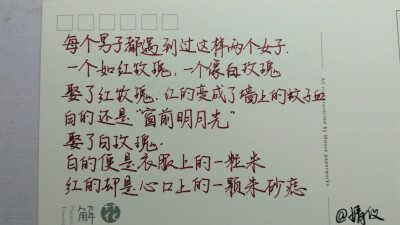 每个男子都遇到过这样两个女子.
一个如红玫瑰,一个像白玫瑰
娶了红玫瑰,红的变成了墙上的蚊子血
白的还是“窗前明月光”
娶了白玫瑰.
白的便是衣服上的一粒米
红的却是心口上的一颗朱砂痣
解
@婧仪